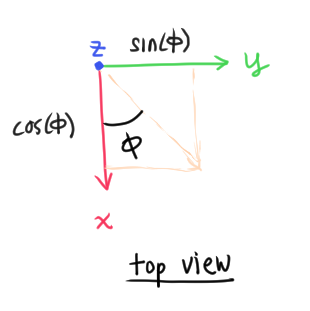 z
sin(ϕ)
y
cos(ϕ)
ϕ
x
top view